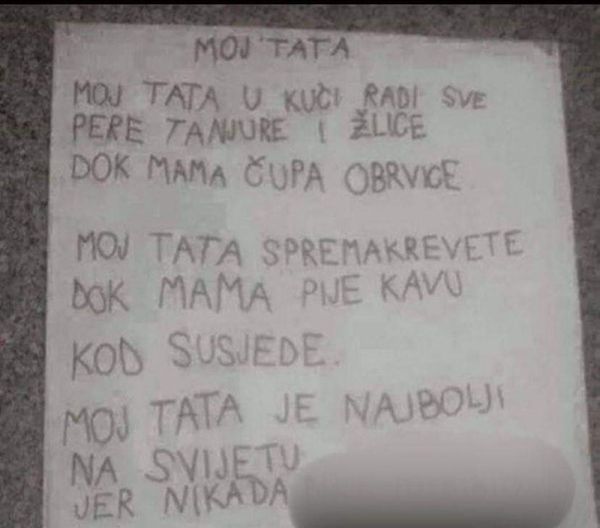 MOJ TATA
MOJ TATA U KUĆI RADI SVE
PERE TANJURE I ŽLICE
DOK MAMA ČUPA OBRVICE
MOJ TATA SPREMAKREVETE
DOK MAMA PIJE KAVU
KOD SUSJEDE.
MOJ TATA JE NAJBOLJI
NA SVIJETU
JER NIKADA